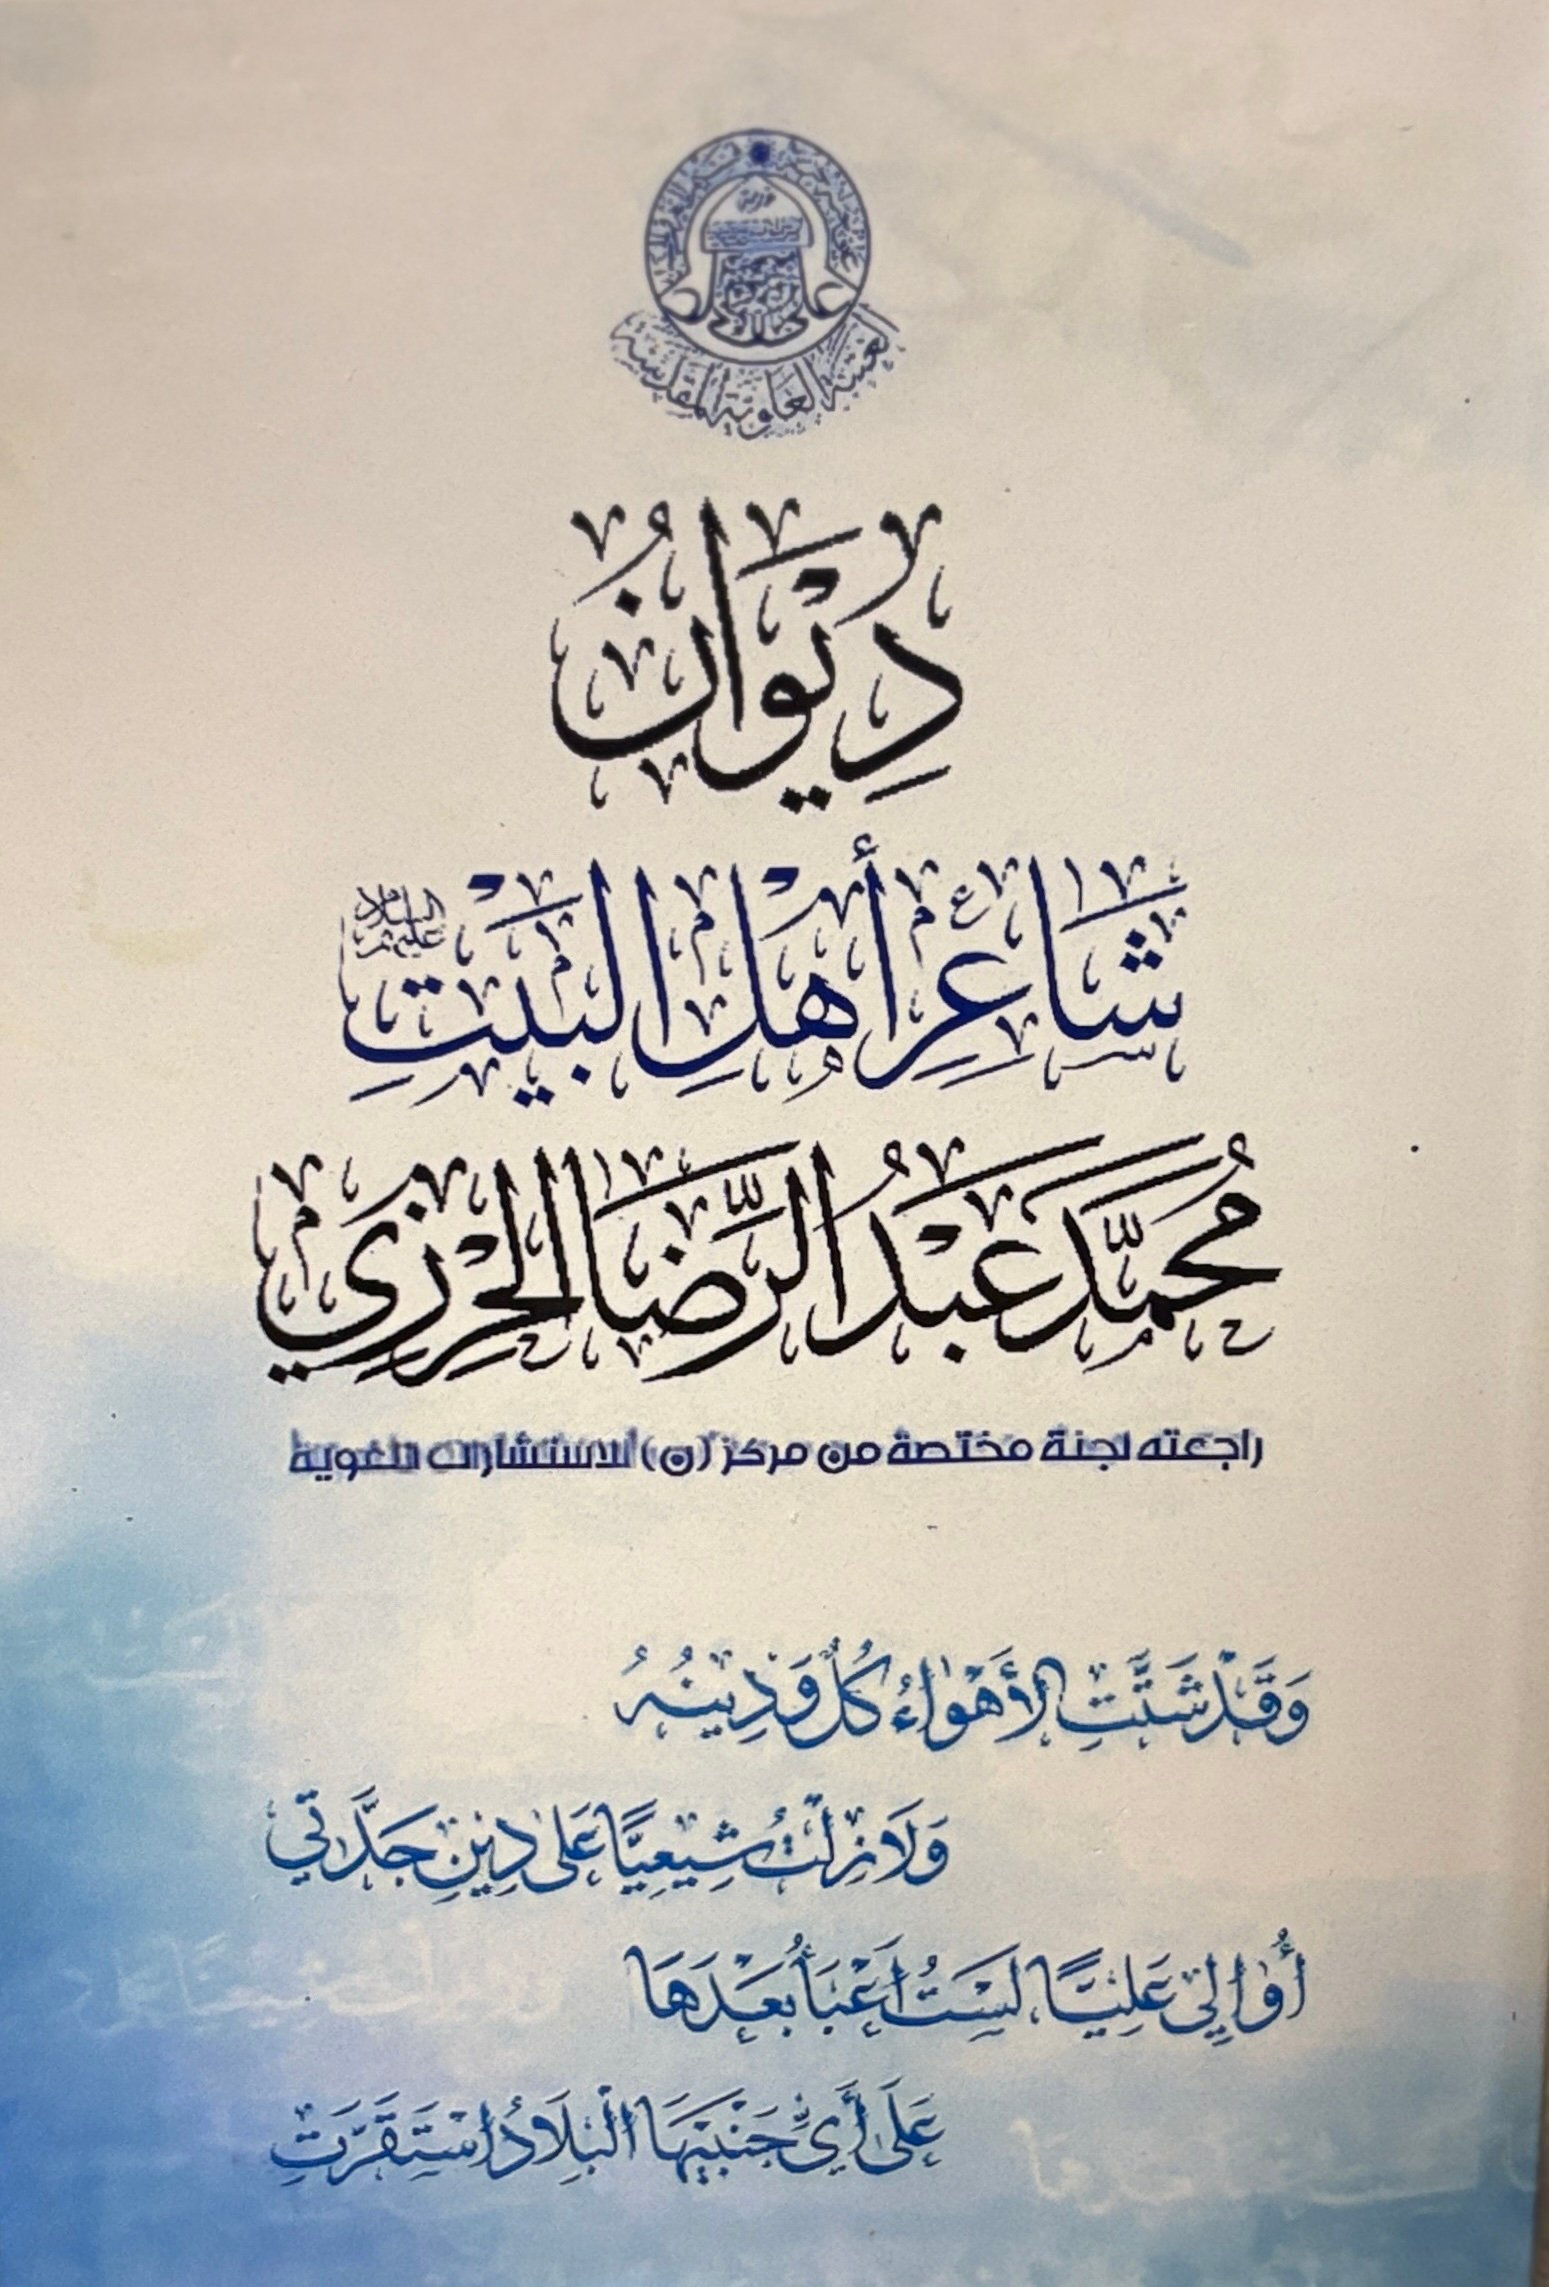 العتبة العلوية المقدسة
دِيْوَانُ
شَاعِرِ أَهْلِ الْبَيْتِ عليهم السلام
مُحَمَّد عَبْدُ الرِّضَا الحِرْزِي
راجعته لجنة مختصة من مركز (ن) للاستشارات اللغوية
وَقَدْ شَتَّتِ الأَهْوَاءُ كُلٌّ وَدِينُهُ
وَلَا زِلْتُ شِيعِيًّا عَلى دِينِ جَدَّتِي
أُوَالِي عَلِيًّا لَسْتُ أَعْبَأُ بَعْدَهَا
عَلَى أَيِّ جَنْبَيْهَا الْبِلَادُ اسْتَقَرَّتِ